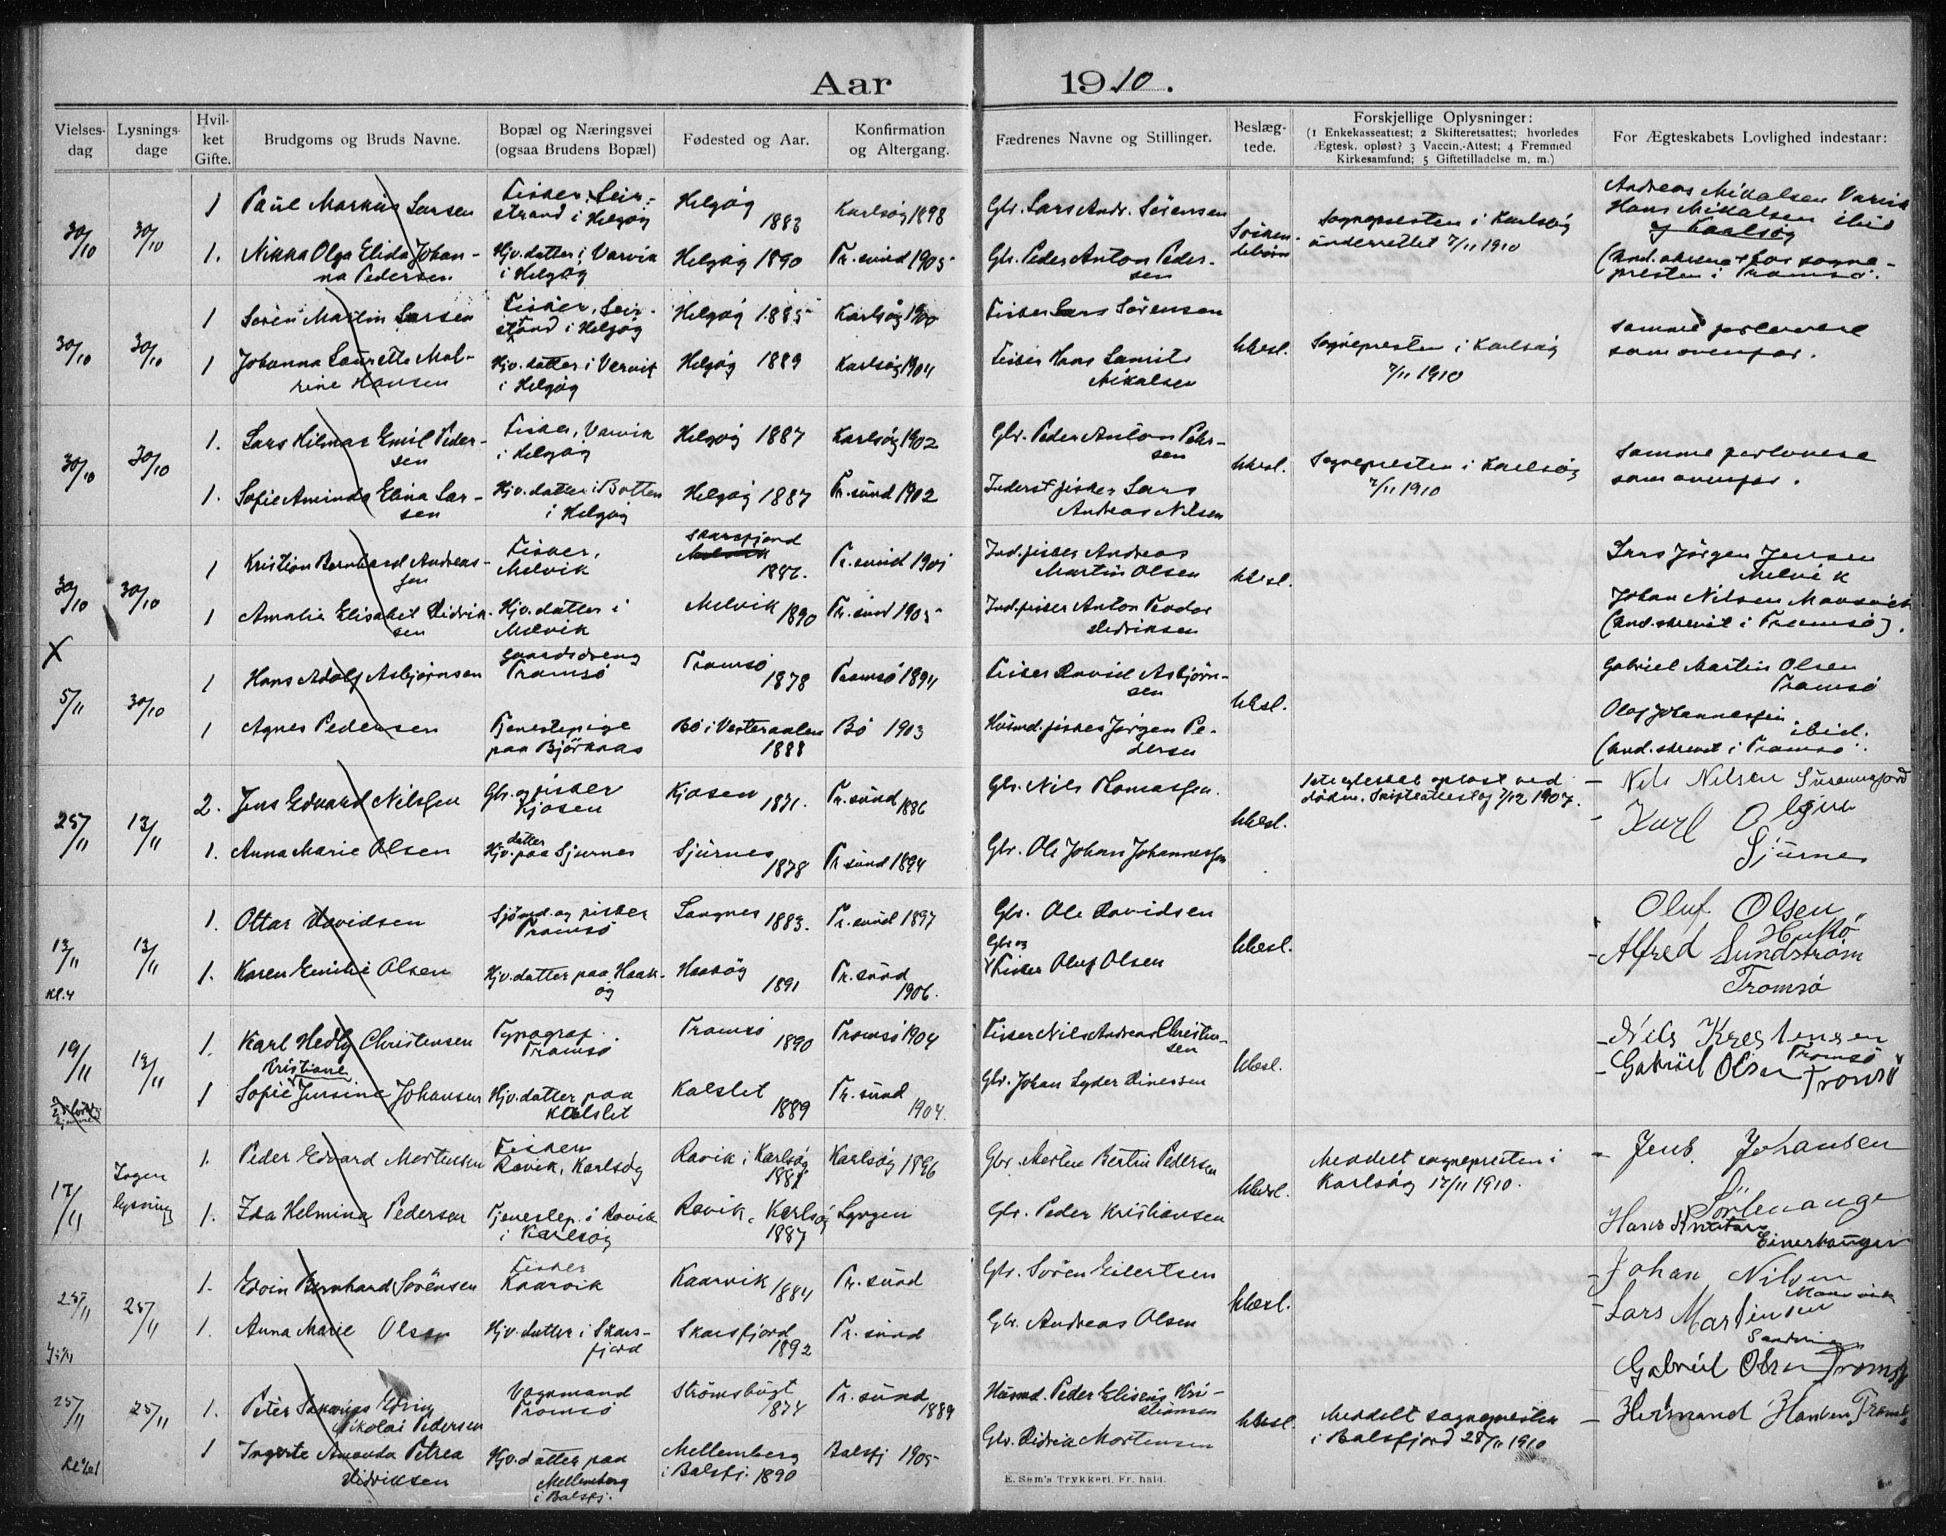 Aar 1910.
Vielses-dag
Lysnings-dage
Hvil-ket Gifte.
Brudgoms og Bruds Navne.
Bopæl og Næringsvei (ogsaa Brudens Bopæl)
Fødested og Aar.
Konfirmation og Altergang.
Fædrenes Navne og Stillinger.
Beslæg-tede.
Forskjellige Oplysninger:
(1 Enkekasseattest; 2 Skifteretsattest; hvorledes
Ægtesk. opløst? 3 Vaccin.-Attest; 4 Fremmed
Kirkesamfund; 5 Giftetilladelse m. m.)
For Ægteskabets Lovlighed indestaar:
30/10 30/10 1 Paul Markus Larsen Fisker, Seir-
strand i Helgøy Helgøy 1883 Karlsøy 1898 Gbr. Lars Andr. Sørensen Søsken-
debørn Sognepresten i Karlsøy
underrettet 7/11 1910 Andreas Mikalsen Varvik
Hans Mikalsen ibid
af Karlsøy
1. Nikka Olga Elida Johan-
na Pedersen Hjv. datter i Varvik
i Helgøy Helgøy 1890 Tr.sund 1905 Gbr. Peder Anton Peder-
sen (und.skrevet for sogne-
presten i Tromsø.
30/10 30/10 1 Søren Martin Larsen Fisker, Seir-
strand i Helgøy Helgøy 1885 Karlsøy 1900 Fisker Lars Sørensen
Ubesl. Sognepresten i Karlsøy
7/11 1910 Samme forlovere
som ovenfor.
1 Johanna Lauretta Mal-
rine Hansen Hjv. datter i Varvik
i Helgøy Helgøy 1889 Karlsøy 1904 Fisker Hans Laurits
Mikalsen
30/10 30/10 1. Lars Hilmar Emil Peder-
sen Fisker, Varvik
i Helgøy Helgøy 1887 Karlsøy 1902 Gbr. Peder Anton Peder-
sen
Ubesl. Sognepresten i Karlsøy
7/11 1910 Samme forlovere
som ovenfor.
1. Sofie Aminda Elina Lar-
sen Hjv. datter i Botten
i Helgøy Helgøy 1887 Tr.sund 1902 Inderst fisker Lars
Andreas Nilsen
30/10 30/10 1 Kristian Bernhard Andreas-
sen Fisker,
Melvik Skarsfjord
1886. Tr.sund 1901 Ind. fisker Andreas
Martin Olsen Ubesl. Lars Jørgen Jensen
Melvik
1 Amalie Elisabet Didrik-
sen Hjv. datter i
Melvik Melvik 1890 Tr.sund 1905 Ind. fisker Anton Teodor
Didriksen Johan Nilsen Mausvik
(und.skrevet i Tromsø).
X
5/11 30/10 1 Hans Adolf Asbjørnsen Gaardsdreng
Tromsø Tromsø 1878 Tromsø 1894 Fisker David Asbjørn-
sen Ubesl. Gabriel Martin Olsen
Tromsø
1 Agnes Pedersen Tjenestepige
paa Bjørkaas Bø i Vesteraalen
1888 Bø 1903 Husmd. fisker Jørgen Pe-
dersen Olaf Johannessen
ibid.
(und.skrevet i Tromsø.
25/11 13/11 2. Jens Edvard Nilssen Gbr. og fisker
Kjosen Kjosen 1871. Tr.sund 1886 Gbr. Nils Thomassen. Ubesl. 1ste egteskab opløst ved
døden. Skifteattest af 7/12 1907. - Nils Nilsen
1. Anna Marie Olsen Hjv. datter paa Sjurnes Sjurnes
1878 Tr.sund 1894 Gbr. Ole Johan Johannessen Karl Olsen
Sjurnes
13/11 13/11 1. Ottar Davidsen Sjømd. og fisker
Tromsø Langnes 1883. Tr.sund 1897 Gbr. Ole Davidsen Ubesl. Oluf Olsen,
Kl. 4 1. Karen Emilie Olsen Hjv. datter paa Haak-
øy Haakøy 1891 Tr.sund
1906. Gbr og
Fisker Oluf Olsen - Alfred Sundstrøm
Tromsø
19/11 13/11 1. Karl Hedly Christensen Typograf.
Tromsø Tromsø 1890 Tromsø 1904 Fisker Nils Andreas Christen-
sen Ubesl. - Nils Kristensen
Tromsø
1 Sofie Kristiane Jensine Johansen Hjv. datter paa
Kalslet Kalslet 1889 Tr.sund 1904. Gbr. Johan Lyder Dinesen - Gabriel Olsen Tromsø
17/11 Ingen
lysning 1. Peder Edvard Mortensen Fisker
Ravik, Karlsøy Ravik i Karlsøy
1881 Karlsøy 1896 Gbr. Morten Bertin Pedersen Ubesl. Meddelt sognepresten i
Karlsøy 17/11 1910. - Jens Johansen
Sørlenangen
1. Ida Helmina Pedersen Tjenestep. i Ravik
i Karlsøy Ravik, Karlsøy
1887 Lyngen Gbr. Peder Kristiansen Hans
25/11 25/11 1. Edvin Bernhard Sørensen Fisker
Kaarvik Kaarvik 1884 Tr.sund Gbr. Søren Eilertsen Ubesl. - Johan Nilsen
Mausvik
1. Anna Marie Olsen Hjv. datter i Skars-
fjord Skarsfjord
1892 Tr.sund Gbr. Andreas Olsen - Lars Martinsen
25/11 25/11 1. Peter Edvin
Nikolai Pedersen Vognmand
Tromsø Strømsbugt
1874 Tr.sund
1889 Husmd. Peder Elisæus Kri-
stiansen Ubesl. Meddelt sognepresten
i Balsfjord 28/11 1910 Gabriel Olsen Tromsø
1 Ingerte Amanda Petrea
Didriksen Hjv. datter paa
Mellemberg
i Balsfj. Mellemberg
i Balsfj. 1890 Balsfj 1905 Gbr. Didrik Mortensen - Hermand Hansen, Tromsø
E. Sem's Trykkeri, Fr. hald.